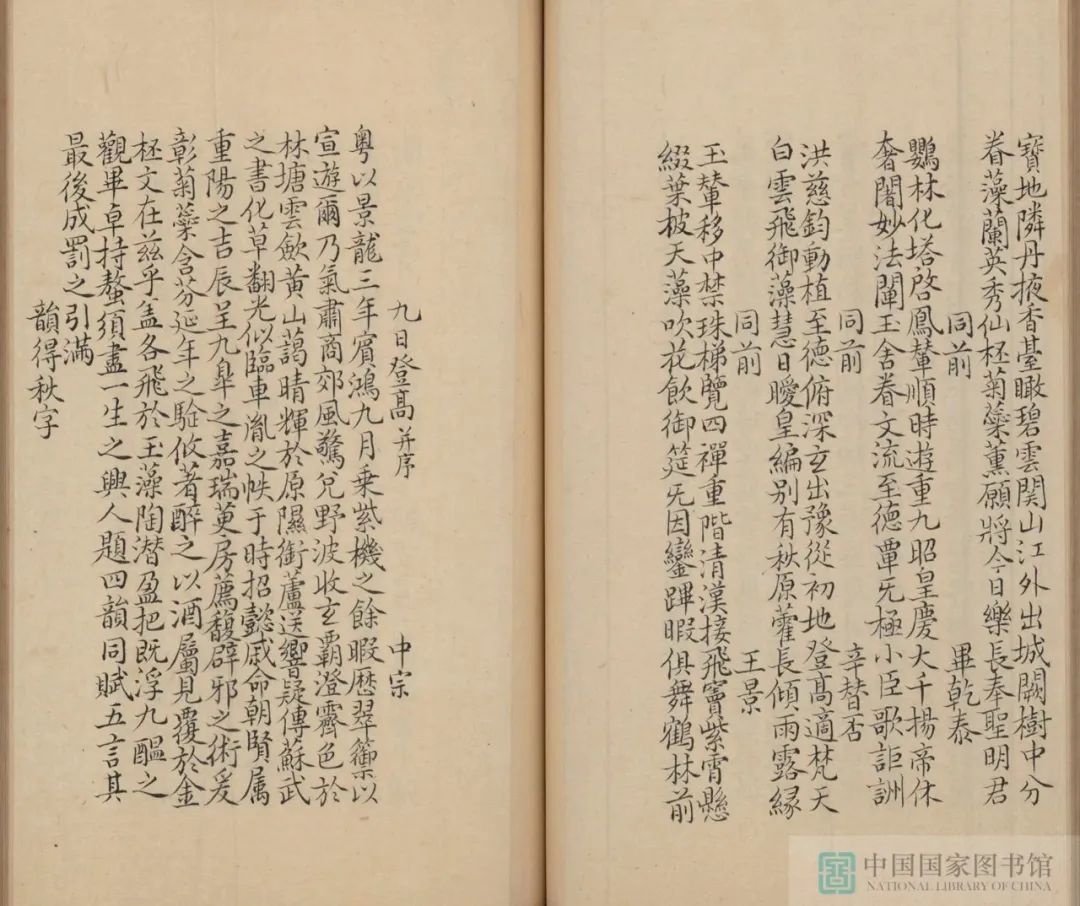 寶地隣丹掖香臺瞰碧雲関山江外出城闕樹中分
眷藻蘭英秀仙柸菊蘂薰願將今日樂長奉聖明君
同前 畢乾泰
鸚林化塔啓鳳輦順時遊重九昭皇慶大千揚帝休
耆闍妙法闡玉舍眷文流至德覃旡極小臣歌詎詶
同前 辛替否
洪慈鈞動植至德俯深玄出豫從初地登髙適梵天
白雲飛御藻慧日曖皇編别有秋原藿長傾雨露縁
同前 王景
玉輦移中禁珠梯覽四禪重階清漢接飛竇紫霄懸
綴葉披天藻吹花飲御筵旡因鑾蹕暇俱舞鶴林前
九日登髙并序 中宗
粤以景龍三年賓鴻九月乗紫機之餘暇歴翠籞以
宣遊爾乃氣肅商郊風驚兊野波收玄覇澄霽色於
林塘雲斂黄山藹晴輝於原隰銜蘆送響疑傳蘇武
之書化草翻光似臨車胤之帙于時招懿戚命朝賢属
重陽之吉辰呈九臯之嘉瑞萸房薦馥辟邪之術爰
彰菊蘂含芬延年之騐攸著醉之以酒屬見覆於金
柸文在兹乎盍各飛於玉藻陶潛盈把既浮九醖之
觀畢卓持螯須盡一生之興人題四韻同賦五言其
最後成罰之引滿
韻得秋字
中国国家图书馆
NATIONAL LIBRARY OF CHINA